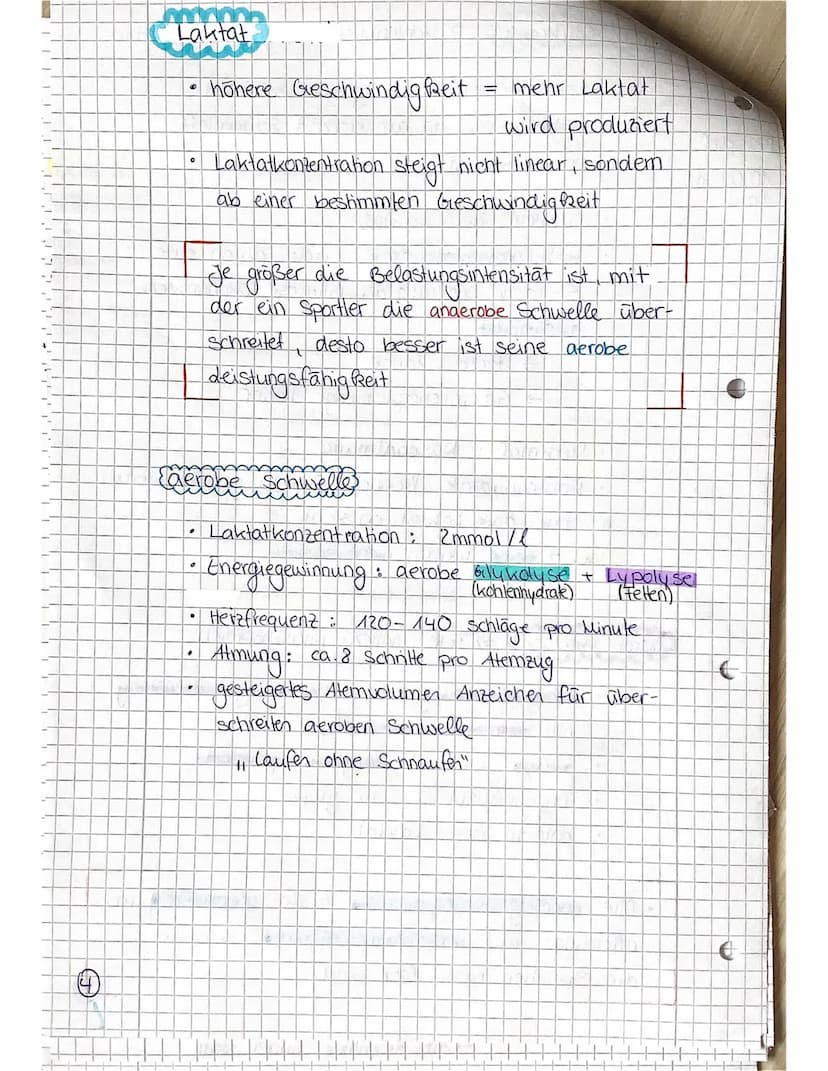 Laktat
• höhere Geschwindigkeit = mehr Laktat
wird produziert
• Laktatkonzentration steigt nicht linear, sondern
ab einer bestimmten Geschwindigkeit
Je größer die Belastungsintensität ist, mit
der ein Sportler die anaerobe Schwelle über-
schreitet, desto besser ist seine aerobe
Leistungsfähigkeit
aerobe Schwelle
• Laktatkonzentration: 2mmol/l
• Energiegewinnung: aerobe Glykolyse + Lypolyse
(Kohlenhydrate) (Fetten)
• Herzfrequenz: 120-140 Schläge pro Minute
• Atmung: ca. 8 Schritte pro Atemzug
• gesteigertes Atemvolumen Anzeichen für über-
schreiten aeroben Schwelle
„Laufen ohne Schnaufen"
4